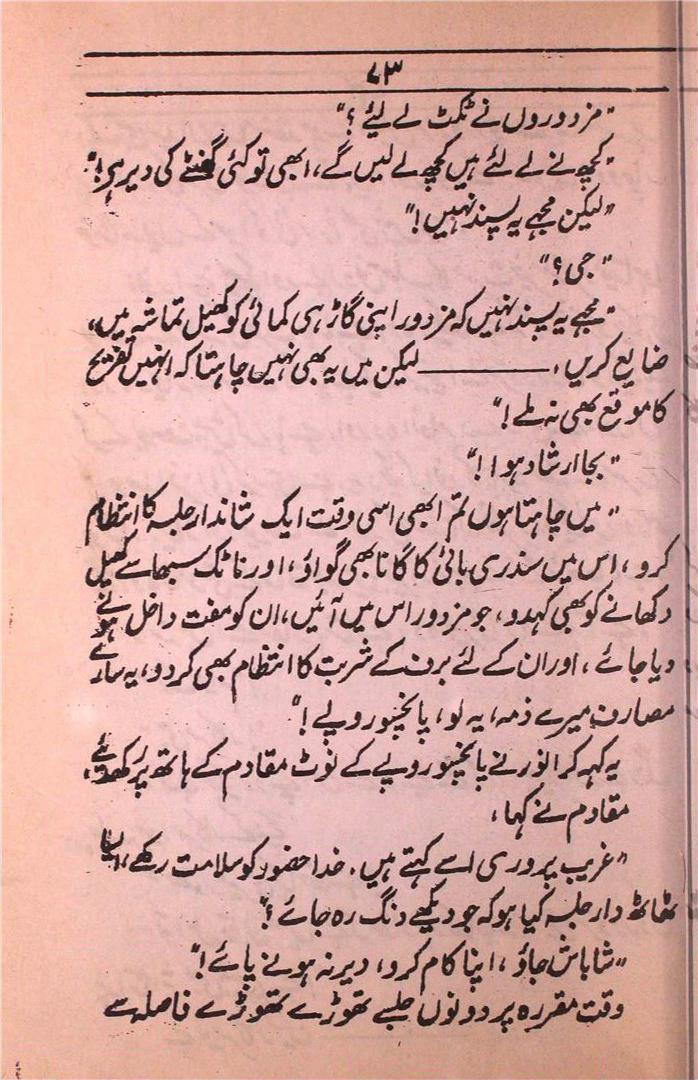 ۷۳
"مزدوروں نے ٹکٹ لے لئے؟"
"کچھ نے لے لئے ہیں کچھ لے لیں گے، ابھی تو کئی گھنٹے کی دیر ہی!"
"لیکن مجھے یہ پسند نہیں!"
"جی؟"
"مجھے یہ پسند نہیں کہ مزدور اپنی گاڑھی کمائی کو کھیل تماشہ میں،
ضایع کریں،ــــــــــــ لیکن میں یہ بھی نہیں چاہتا کہ انہیں تفریح
کا موقع بھی نہ ملے!"
"بجا ارشاد ہوا!"
"میں چاہتا ہوں تم ابھی اسی وقت ایک شاندار جلسہ کا انتظام
کرو، اس میں سندری بائی کا گانا بھی گواؤ، اور ناٹک سبھا سے کھیل
دکھانے کو بھی کہدو، جو مزدور اس میں آئیں، ان کو مفت داخل ہونے
دیا جائے، اور ان کے لئے برف کے شربت کا انتظام بھی کر دو، یہ سارے
مصارف میرے ذمہ، یہ لو، پانچسو روپے!"
یہ کہہ کر انور نے پانچسو روپے کے نوٹ مقادم کے ہاتھ پر رکھدئے،
مقادم نے کہا،
"غریب پروری اسے کہتے ہیں۔ خدا حضور کو سلامت رکھے، ایسا
ٹھاٹھ دار جلسہ کیا ہو کہ جو دیکھے دنگ رہ جائے؟"
"شاباش جاؤ، اپنا کام کرو، دیر نہ ہونے پائے!"
وقت مقررہ پر دونوں جلسے تھوڑے تھوڑے فاصلہ سے